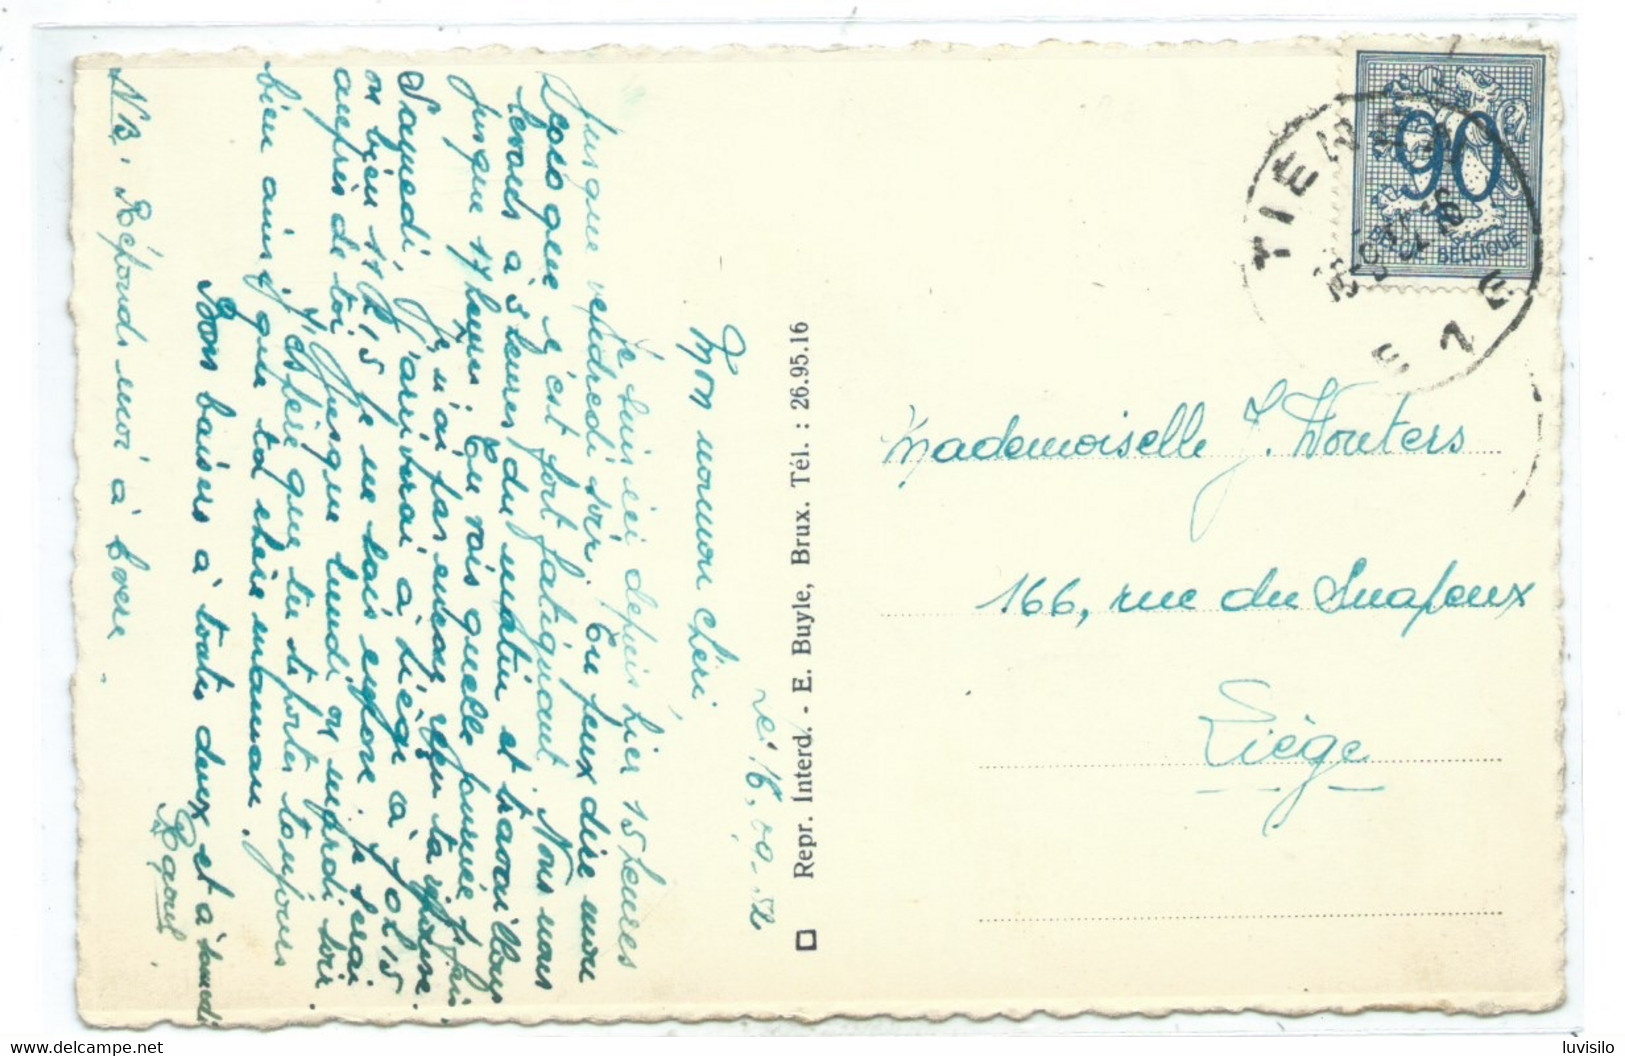 ici 16.09.52
Mon nounou chéri
Je suis ici depuis hier 15 heures
jusque vendredi soir. Tu peux dire mon
que c'est fort fatiguant. Nous nous
levons à 5 heures du matin et travaillons
jusque 17 heures. Tu vois quelle journée je fais.
Je n'ai pas encore reçu ta
Samedi, j'arriverai à Liège à 9h15
ou bien 11h15 je ne sais encore, je serai
auprès de toi jusque lundi ou mardi soir.
J'espère que tu te portes toujours
bien ainsi que ta chère maman.
Bons baisers à toutes deux et à samedi
Raoul
NB. Réponds-moi à
Repr. Interd. - E. Buyle, Brux. Tél. : 26.95.16
90
BELGIE BELGIQUE
Mademoiselle J. Wouters
166, rue du Snapeux
Liège
delcampe.net
luvisilo